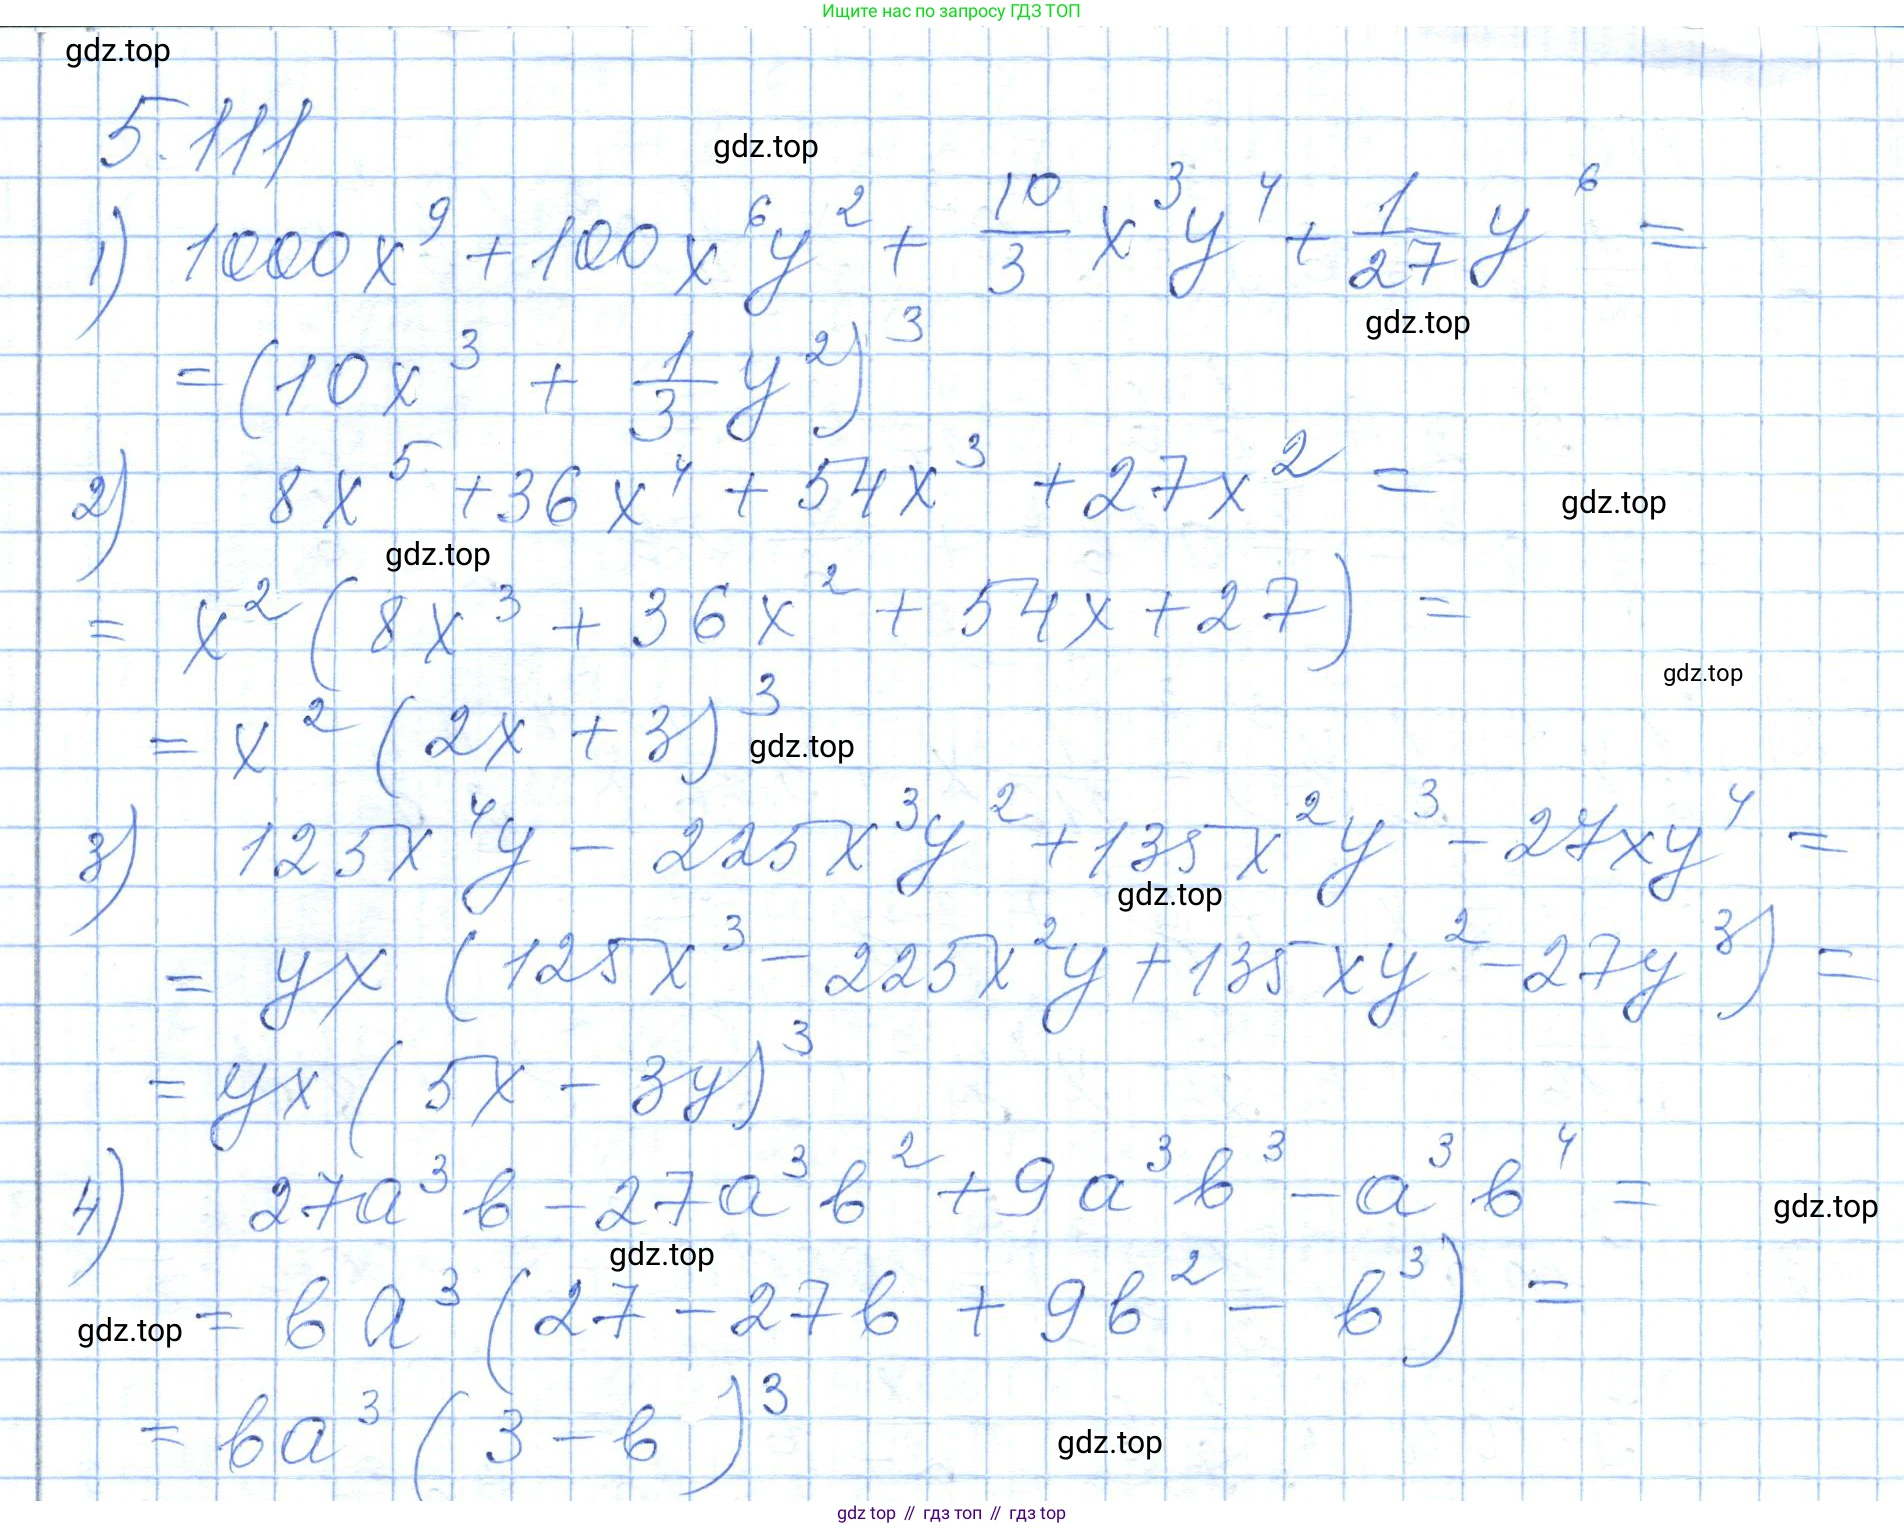 Ищите нас по запросу ГДЗ ТОП
gdz.top
5.111
gdz.top
1) 1000x⁹ + 100x⁶y² + 10/3 x³y⁴ + 1/27 y⁶ =
gdz.top
= (10x³ + 1/3 y²)³
2) 8x⁵ + 36x⁴ + 54x³ + 27x² =
gdz.top
gdz.top
= x²(8x³ + 36x² + 54x + 27) =
gdz.top
= x²(2x + 3)³
gdz.top
3) 125x⁴y - 225x³y² + 135x²y³ - 27xy⁴ =
gdz.top
= yx(125x³ - 225x²y + 135xy² - 27y³) =
= yx(5x - 3y)³
4) 27a³b - 27a³b² + 9a³b³ - a³b⁴ =
gdz.top
gdz.top
= ba³(27 - 27b + 9b² - b³) =
gdz.top
= ba³(3 - b)³
gdz.top
gdz top // гдз топ // гдз top